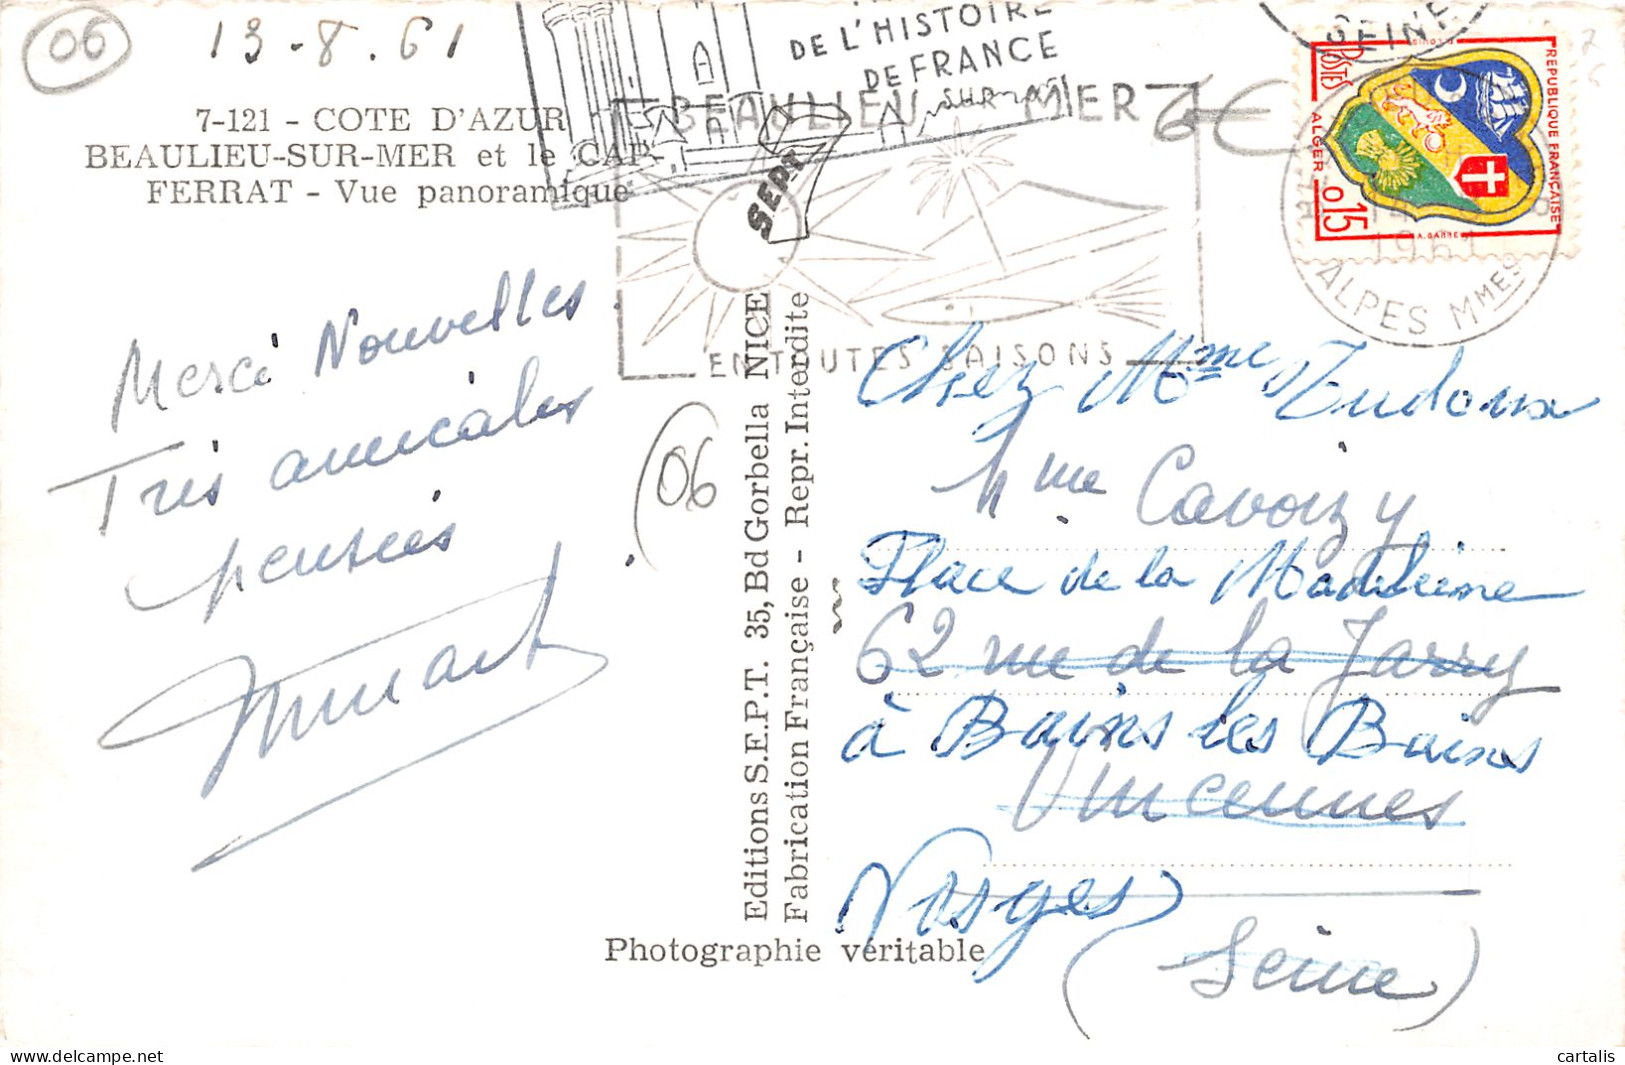 06
13-8.61
7-121 - COTE D'AZUR
BEAULIEU-SUR-MER et le CAP-
FERRAT - Vue panoramique
DE L'HISTOIRE
DE FRANCE
BEAULIEU SUR MER
EN TOUTES SAISONS
SEPT
6€
SEINE
POSTES
REPUBLIQUE FRANÇAISE
ALGER
0,15
1961
ALPES MMES
Merci Nouvelles.
Très amicales
pensées.
06
Editions S.E.P.T. 35, Bd Gorbella NICE
Fabrication Française - Repr. Interdite
Photographie véritable
Chez Mme
Mme
Place de la Madeleine
62 rue de la Jarry
à Bains les Bains
Vincennes
Vosges
(Seine)
cartalis